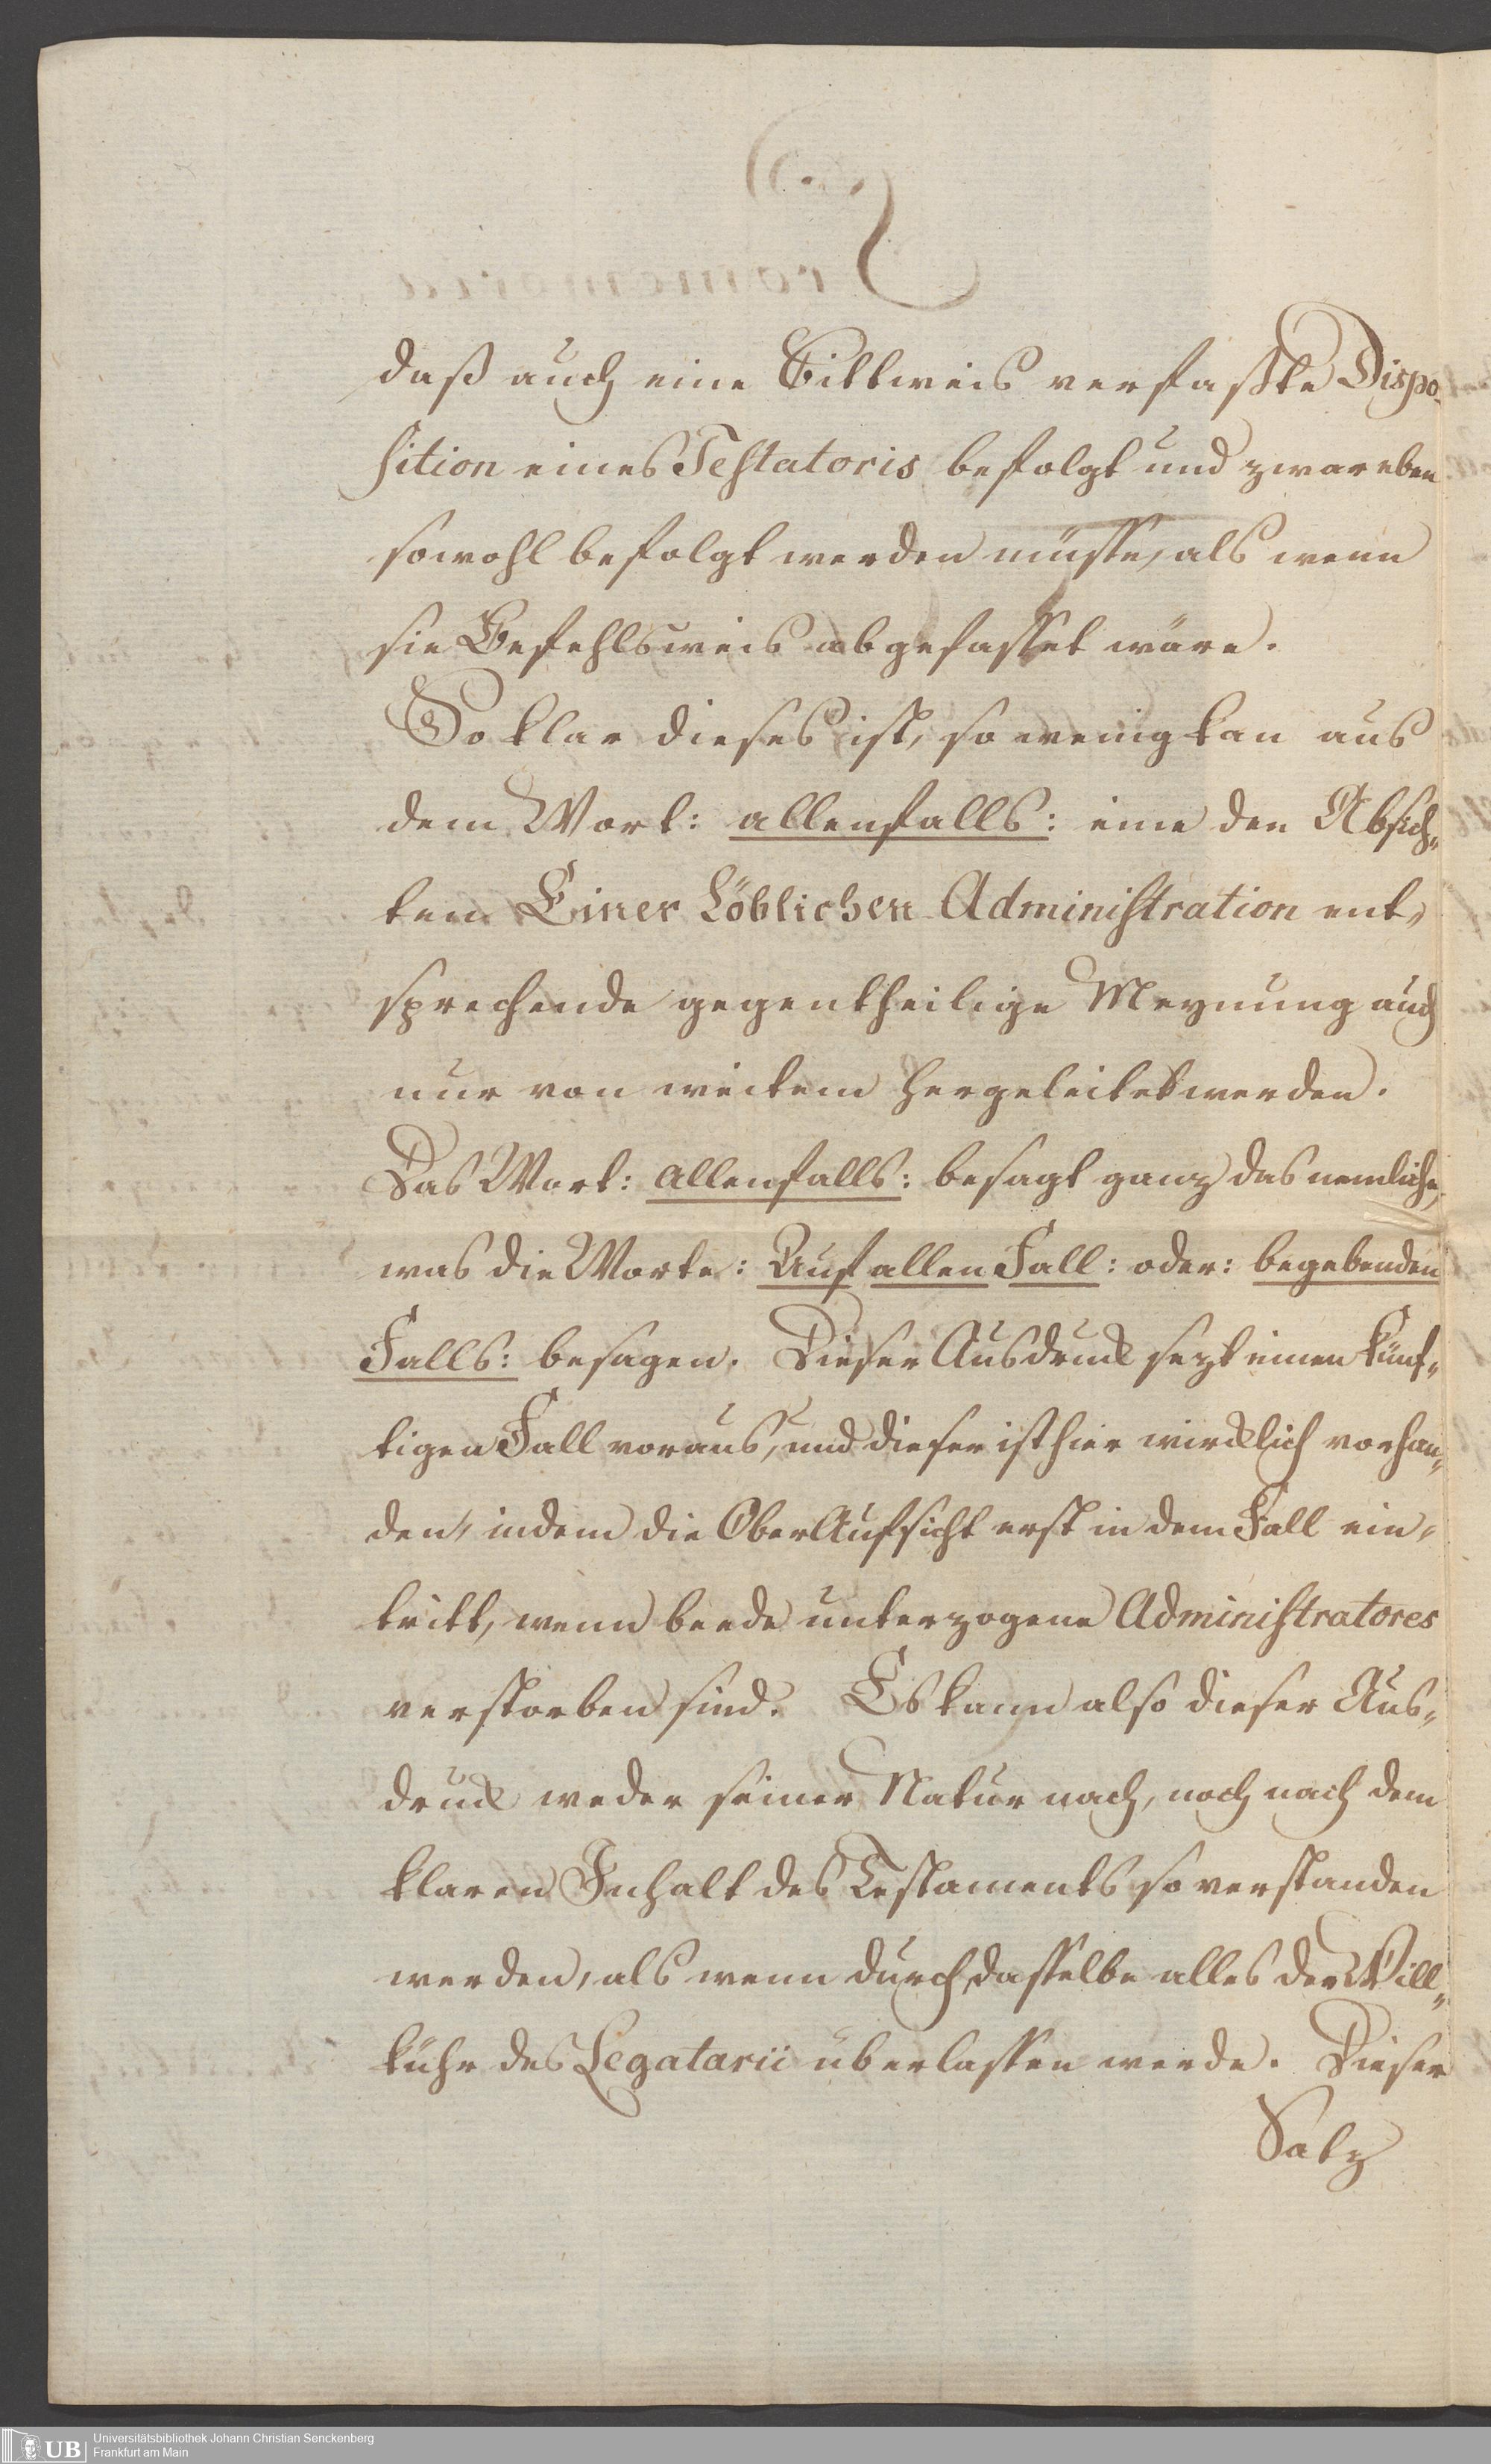 daß auch eine Bittweis verfaßte Dispo-
sition eines Testatoris befolgt und zwar eben
sowohl befolgt werden müsste, als wenn
sie Befehlsweis abgefasset wäre.
So klar dieses ist, so wenig kan aus
dem Wort: allenfalls: eine den Absich„
ten Einer Löblichen Administration ent„
sprechende gegentheilige Meynung auch
nur von weitem hergeleitet werden.
Das Wort: allenfalls: besagt ganz das nemliche,
was die Worte: Auf allen Fall: oder: begebenden
Falls: besagen. Dieser Ausdruck sezt einen künf„
tigen Fall voraus, und dieser ist hier wircklich vorhan„
den, indem die OberAufsicht erst in dem Fall ein„
tritt, wenn beede unterzogene Administratores
verstorben sind. Es kann also dieser Aus„
druck weder seiner Natur nach, noch nach dem
klaren Inhalt des Testaments so verstanden
werden, als wenn durch dasselbe alles der Will„
kühr des Legatarii überlassen werde. Dieser
Satz
UB
Universitätsbibliothek Johann Christian Senckenberg
Frankfurt am Main